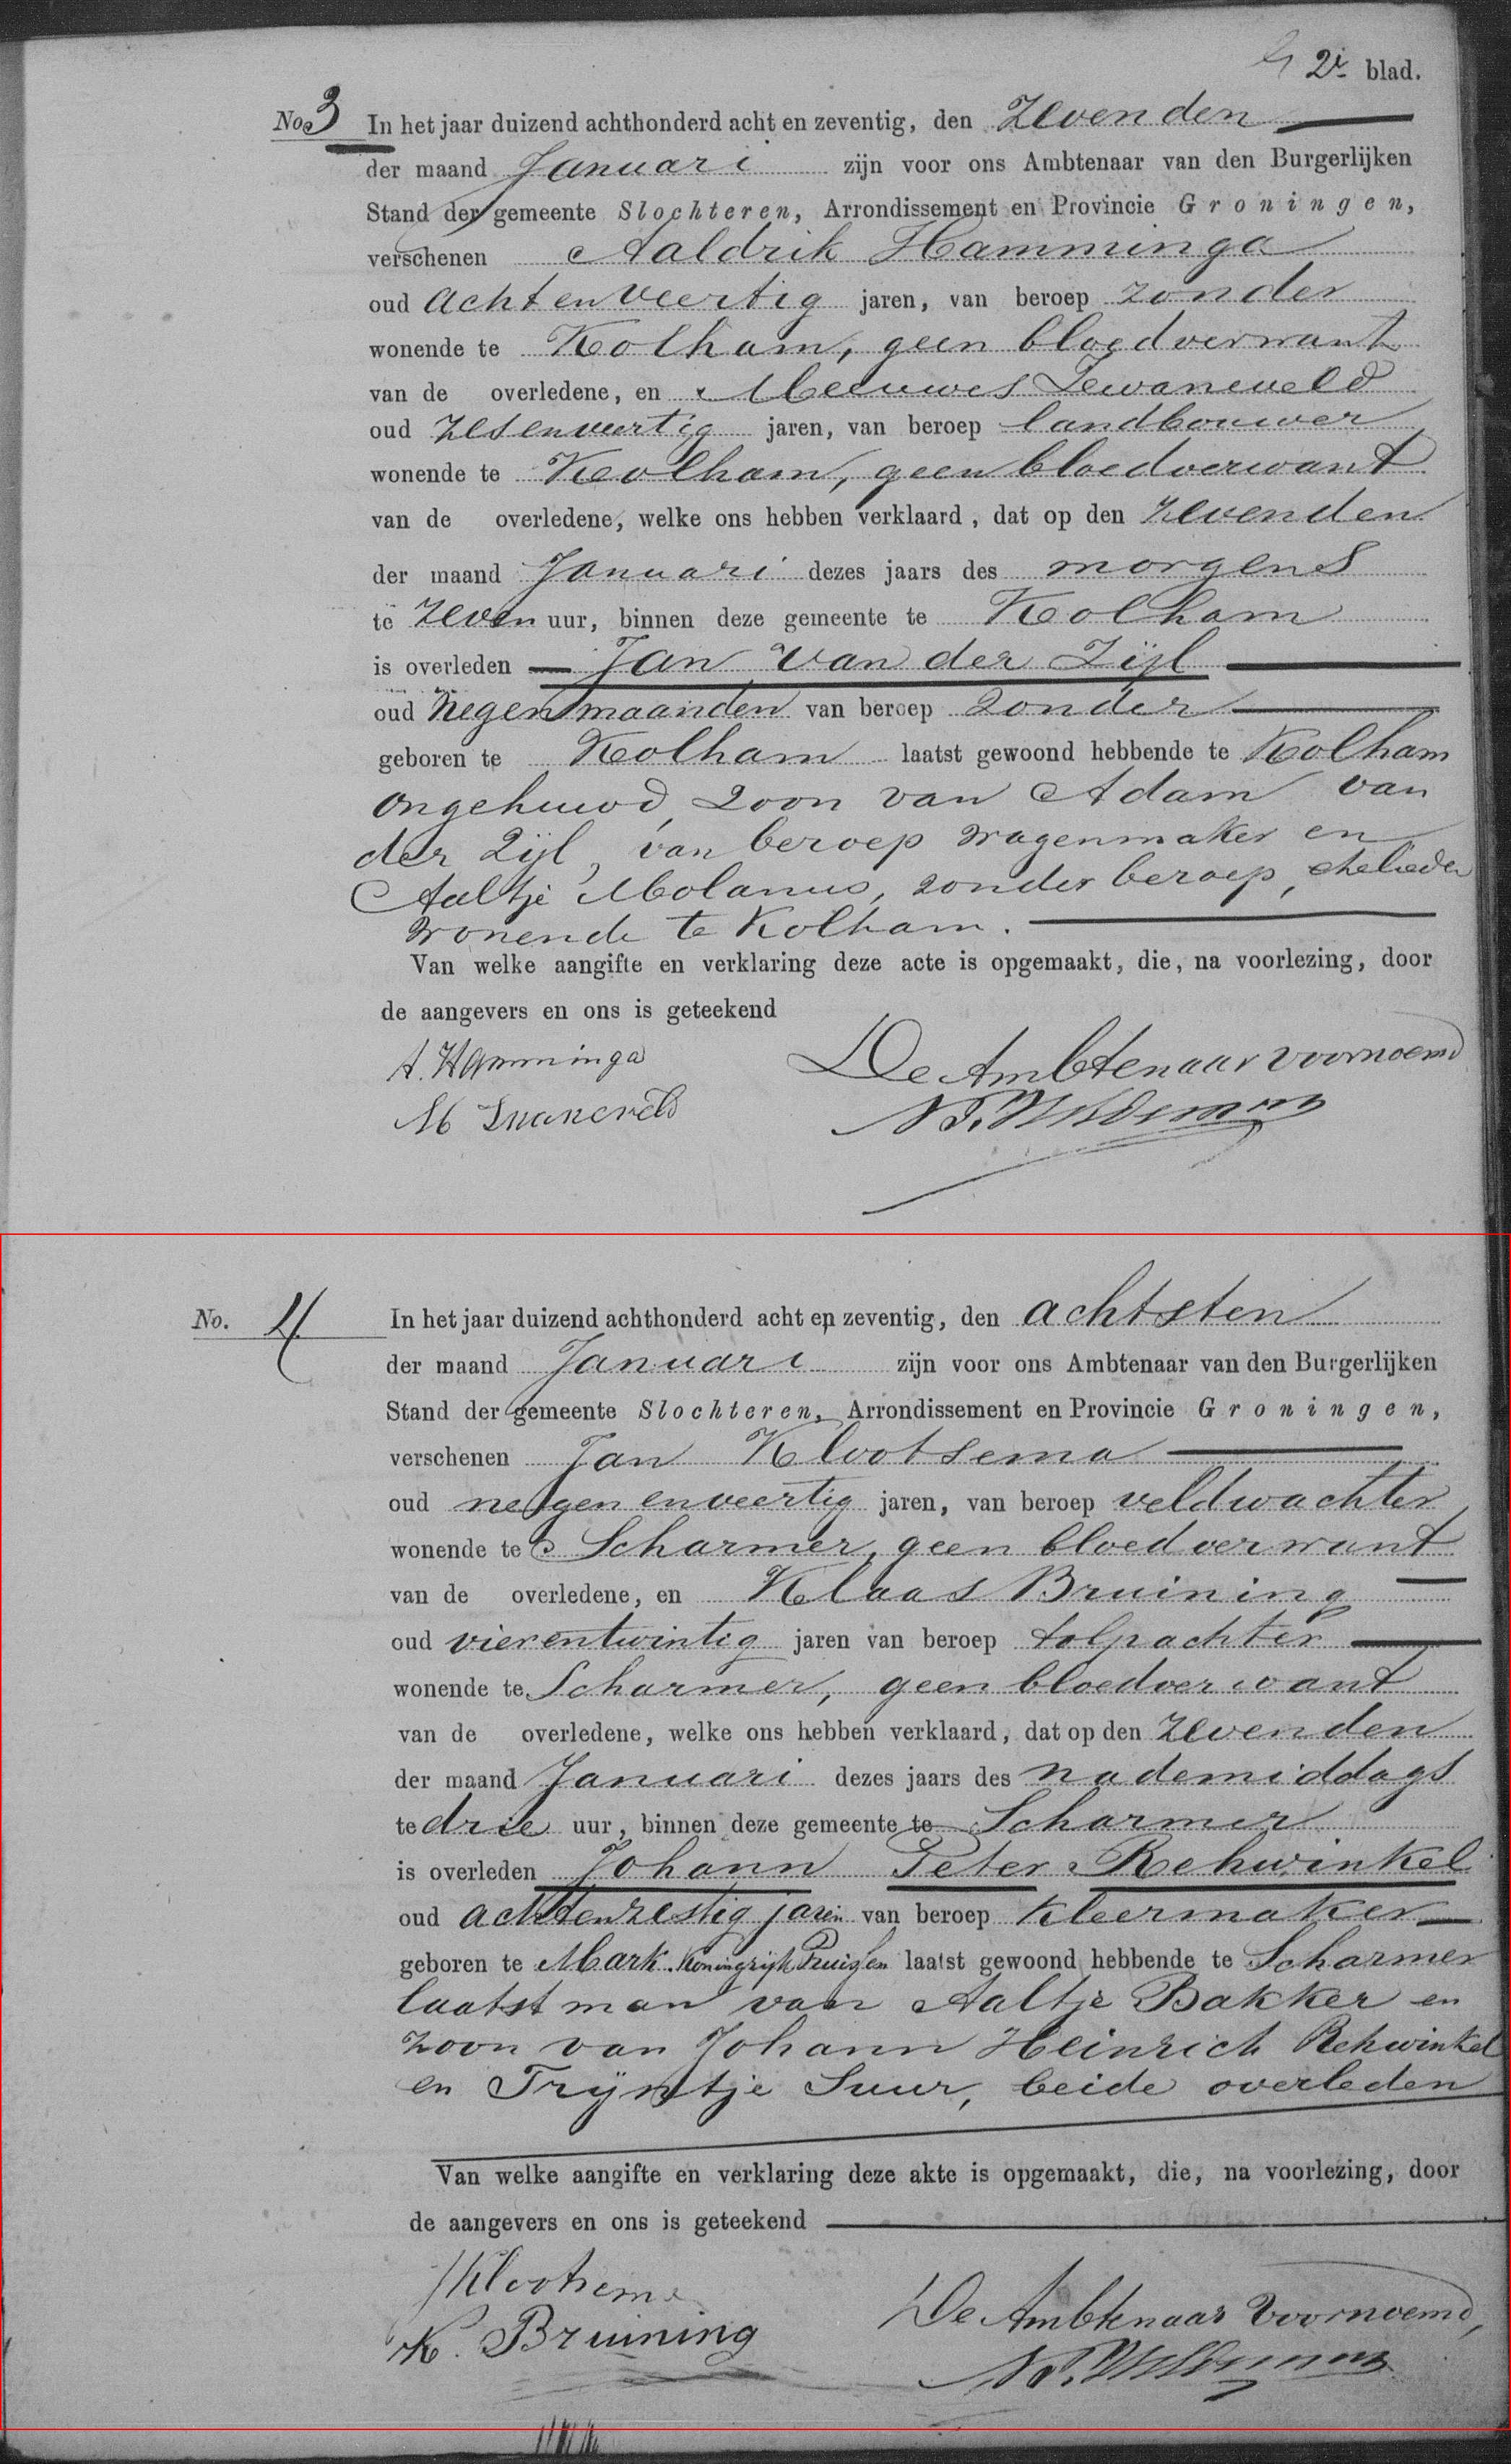 2e blad.
No. 3 In het jaar duizend achthonderd acht en zeventig, den Zevenden
der maand Januari zijn voor ons Ambtenaar van den Burgerlijken
Stand der gemeente Slochteren, Arrondissement en Provincie Groningen,
verschenen Aaldrik Hamminga
oud achtenveertig jaren, van beroep zonder
wonende te Kolham, geen bloedverwant
van de overledene, en Meeuwes Zwaneveld
oud zesenveertig jaren, van beroep landbouwer
wonende te Kolham, geen bloedverwant
van de overledene, welke ons hebben verklaard, dat op den zevenden
der maand Januari dezes jaars des morgens
te zeven uur, binnen deze gemeente te Kolham
is overleden Jan van der Zijl
oud negen maanden van beroep zonder
geboren te Kolham laatst gewoond hebbende te Kolham
ongehuwd, zoon van Adam van
der Zijl, van beroep wagenmaker en
Aaltje Molanus, zonder beroep, echelieden
wonende te Kolham.
Van welke aangifte en verklaring deze acte is opgemaakt, die, na voorlezing, door
de aangevers en ons is geteekend
A. Hamminga
De Ambtenaar voornoemd
M Zwaneveld
No. 4 In het jaar duizend achthonderd acht en zeventig, den achtsten
der maand Januari zijn voor ons Ambtenaar van den Burgerlijken
Stand der gemeente Slochteren, Arrondissement en Provincie Groningen,
verschenen Jan Klootsema
oud negenenveertig jaren, van beroep veldwachter
wonende te Scharmer, geen bloedverwant
van de overledene, en Klaas Bruining
oud vierentwintig jaren van beroep tolpachter
wonende te Scharmer, geen bloedverwant
van de overledene, welke ons hebben verklaard, dat op den zevenden
der maand Januari dezes jaars des nademiddags
te drie uur, binnen deze gemeente te Scharmer
is overleden Johann Peter Rehwinkel
oud achtenzestig jaren van beroep kleermaker
geboren te Mark Koningrijk Pruisen laatst gewoond hebbende te Scharmer
laatst man van Aaltje Bakker en
zoon van Johann Heinrich Rehwinkel
en Trijntje Suur, beide overleden
Van welke aangifte en verklaring deze akte is opgemaakt, die, na voorlezing, door
de aangevers en ons is geteekend
J Klootsema
De Ambtenaar voornoemd,
K. Bruining